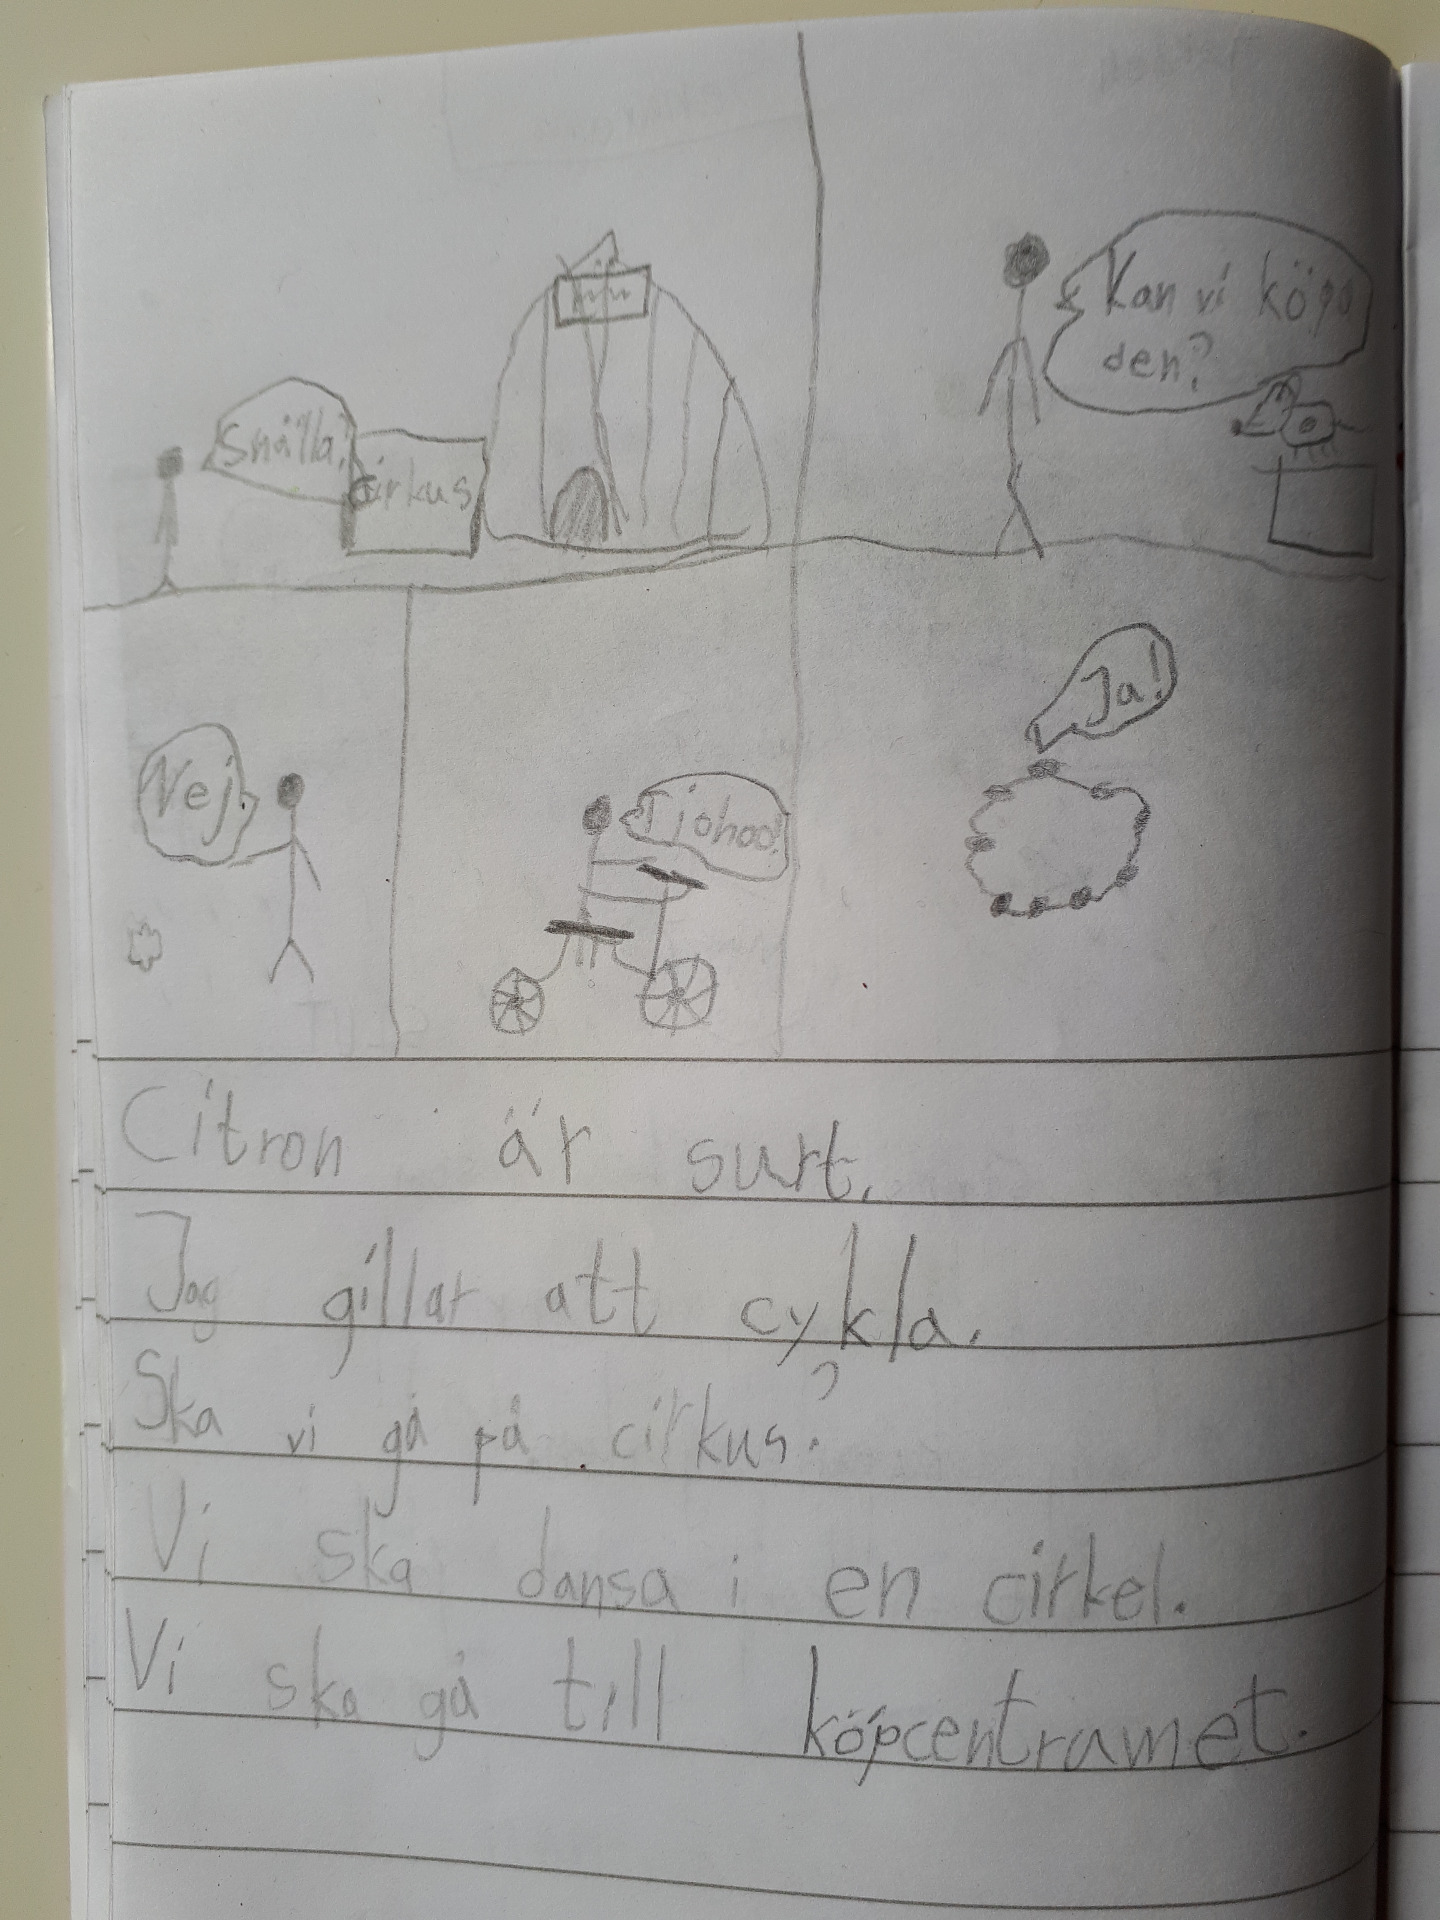 Snälla!
cirkus
Kan vi köpa
den?
Nej.
Tjohoo!
Ja!
Citron är surt.
Jag gillar att cykla.
Ska vi gå på cirkus?
Vi ska dansa i en cirkel.
Vi ska gå till köpcentrumet.